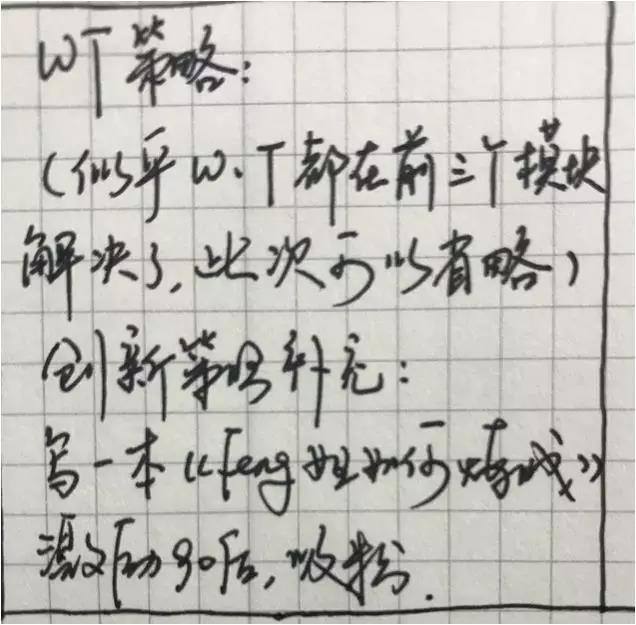 WT策略：
（似乎W、T都在前三个模块
解决了，此次可以省略）
创新策略补充：
写一本《Feng姐如何炼成》
激励90后，吸粉.